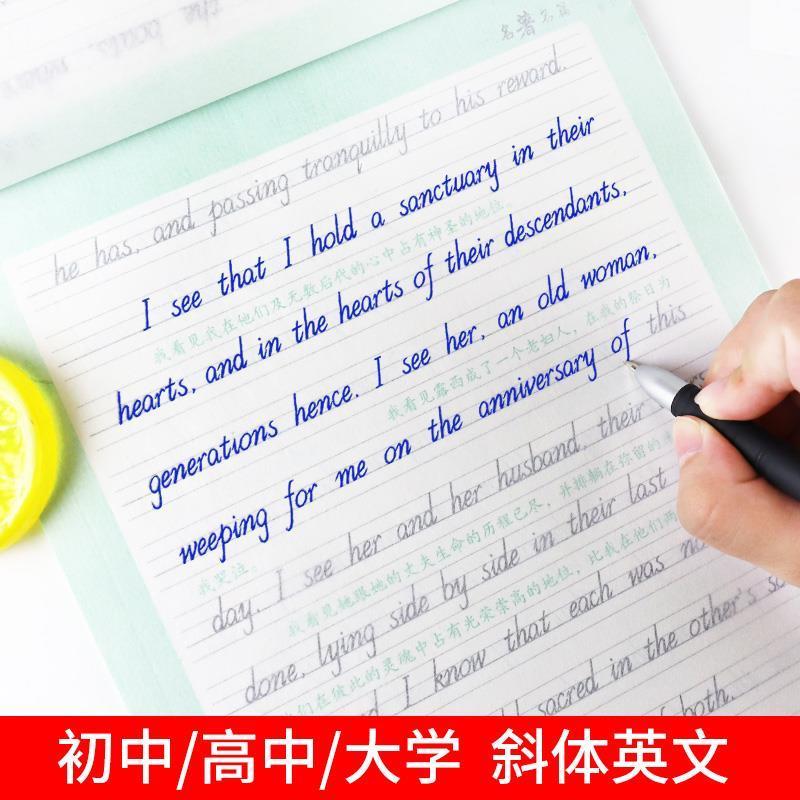 名著名篇
he has, and passing tranquilly to his reward.
I see that I hold a sanctuary in their
我看见我在他们及无数后代的心中占有神圣的地位。
hearts, and in the hearts of their descendants,
generations hence. I see her, an old woman,
我看见露西成了一个老妇人,在我的祭日为
weeping for me on the anniversary of this
我哭泣。
day. I see her and her husband, their
我看见她跟她的丈夫生命的历程已尽,并排躺在弥留的
done, lying side by side in their last
们在彼此的灵魂中占有光荣崇高的地位,比我在他们两
I know that each was
sacred in the other's
both.
初中/高中/大学 斜体英文